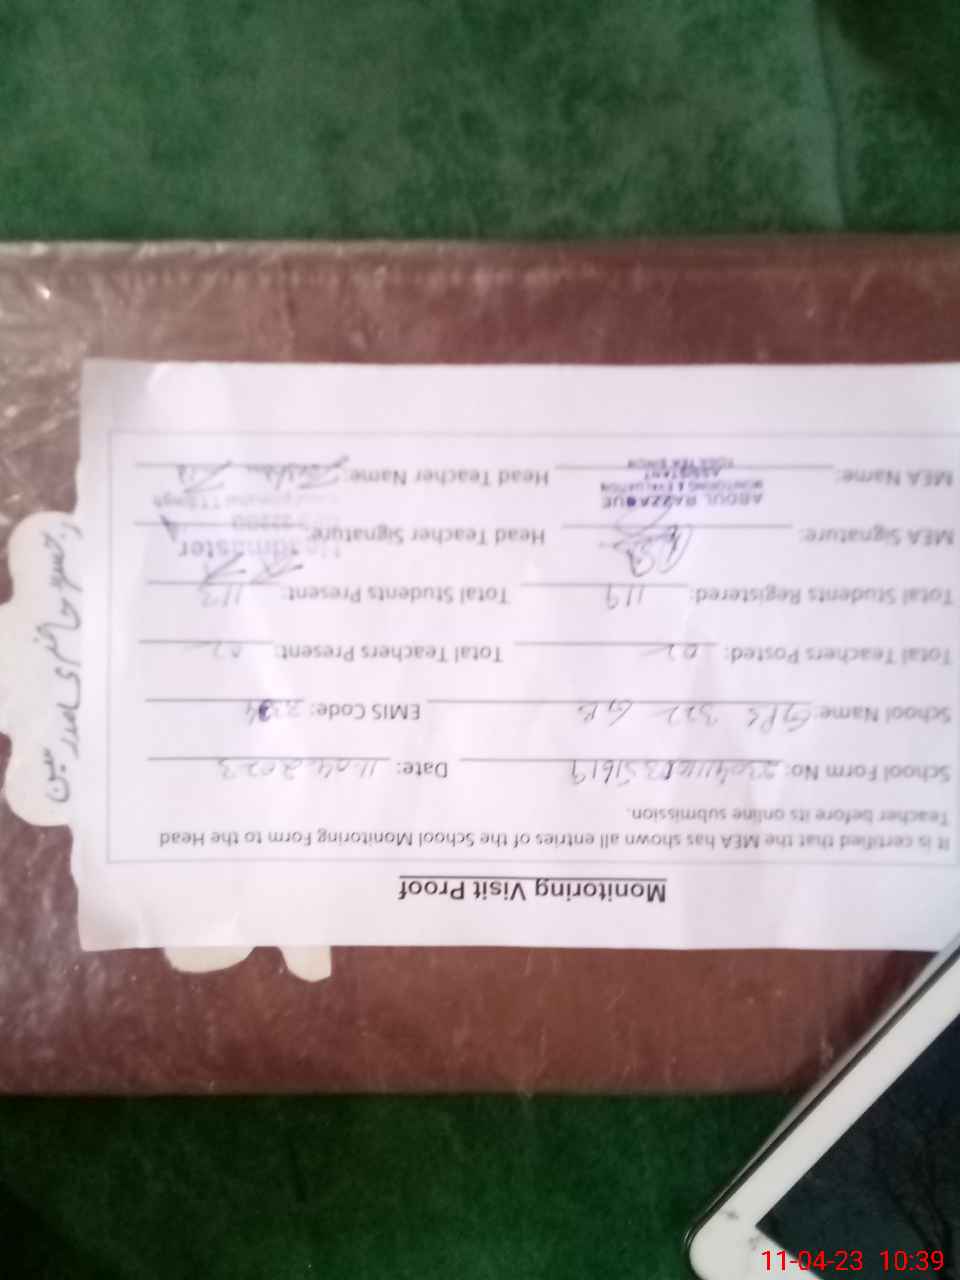 Monitoring Visit Proof
It is certified that the MEA has shown all entries of the School Monitoring Form to the Head
Teacher before its online submission.
School Form No: Date: 11.04.2023
School Name: GPS 322 GB EMIS Code:
Total Teachers Posted: 02 Total Teachers Present: 02
Total Students Registered: 119 Total Students Present: 113
MEA Signature: Head Teacher Signature:
Headmaster
MEA Name: Head Teacher Name:
ABDUL RAZZAQUE
MONITORING & EVALUATION
ASSISTANT
رجسٹر حاضری مدرسین
11-04-23 10:39